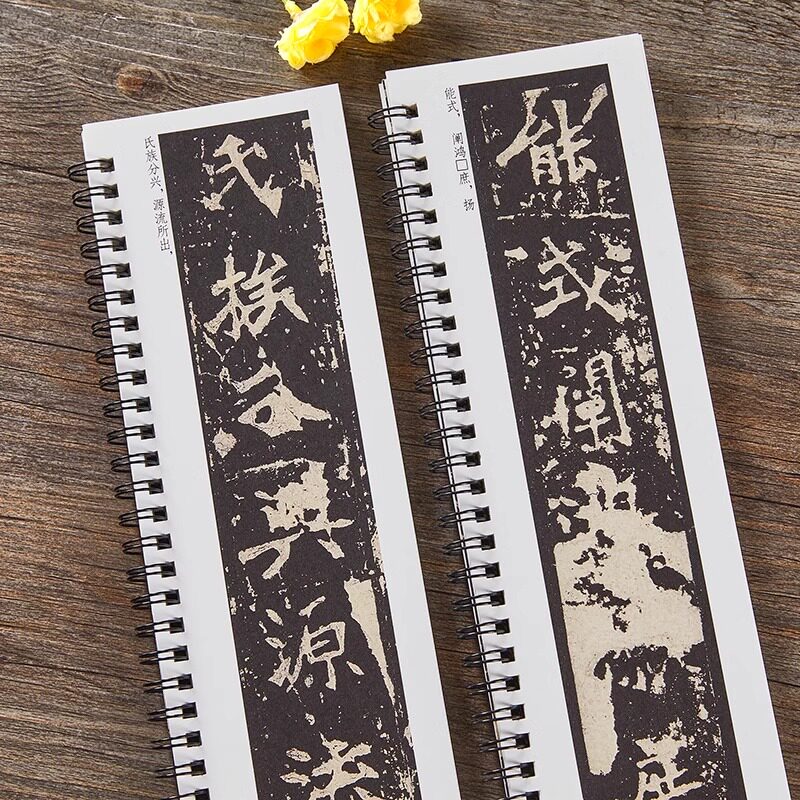 氏族分兴，源流所出，
氏族分興源流
能式， 阐鸿□庶，扬
能式闡